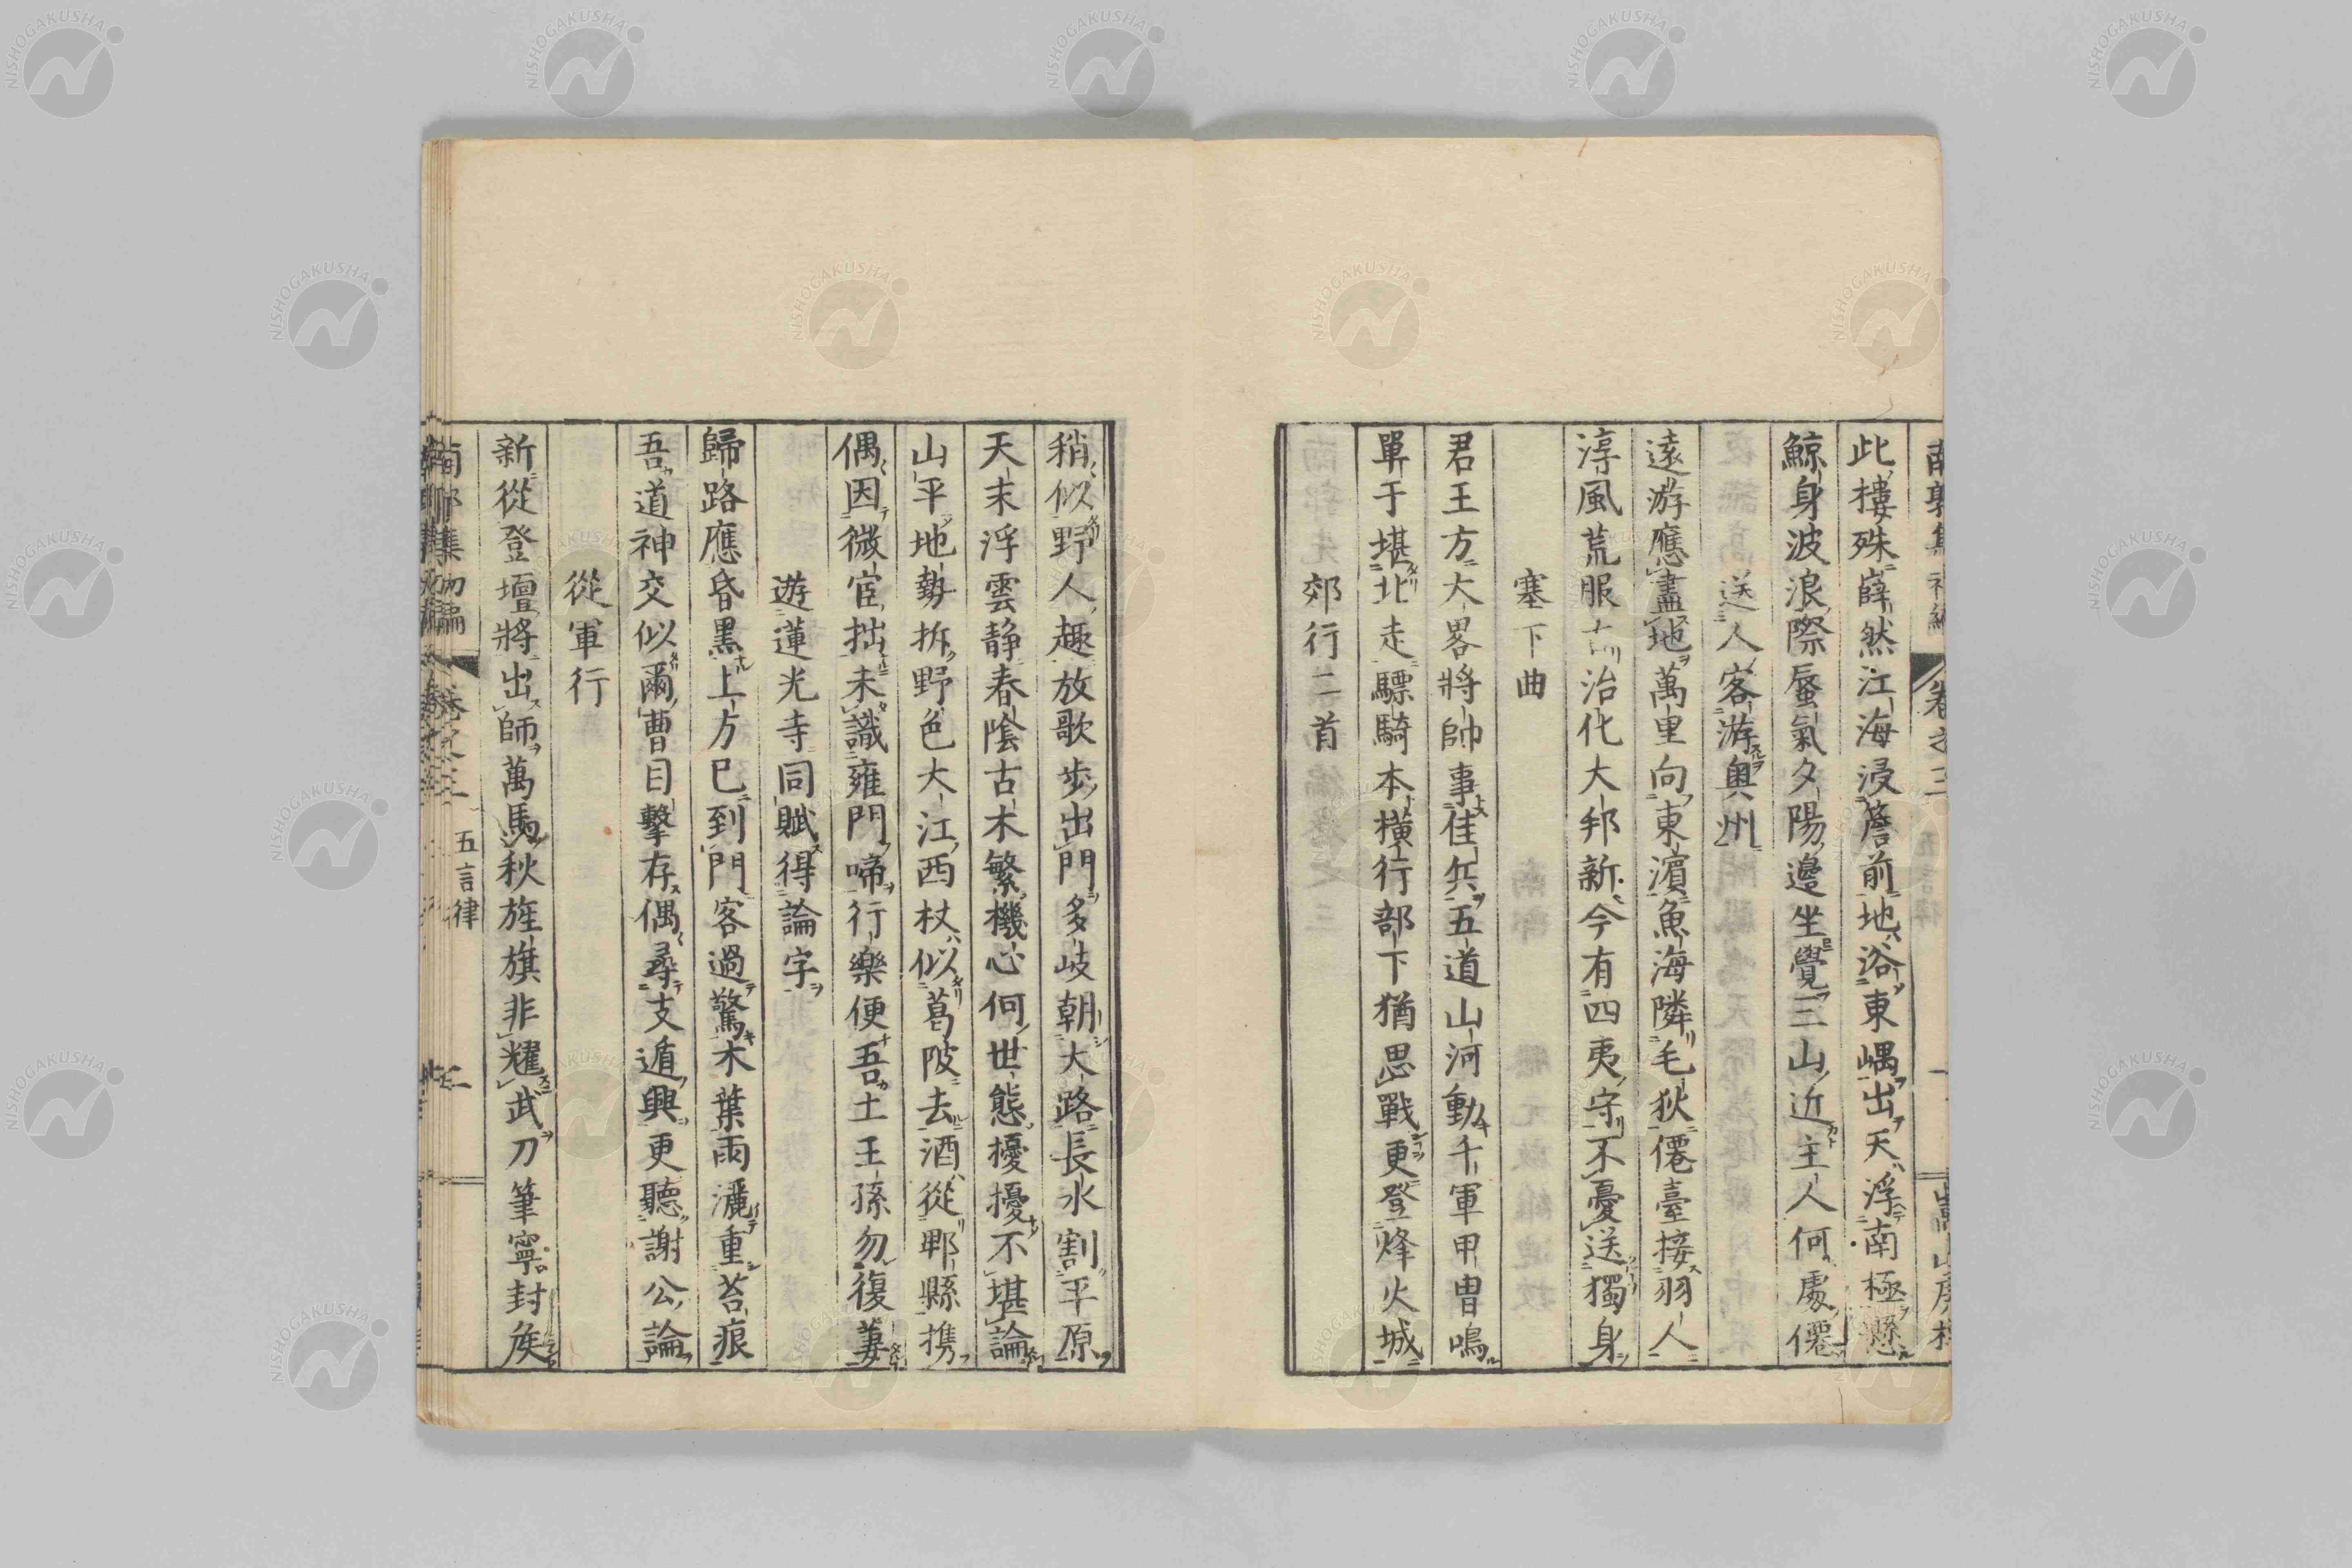 此樓殊薜然江海浸簷前地浴東嵎出天浮南極懸
鯨身波浪際蜃氣夕陽邊坐覺三山近主人何處僊
送人客游奧州
遠游應盡地萬里向東濱魚海隣毛狄僊臺接羽人
淳風荒服古治化大邦新今有四夷守不憂送獨身
塞下曲
君王方大畧將帥事佳兵五道山河動千軍甲冑鳴
單于堪北走驃騎本橫行部下猶思戰更登烽火城
郊行二首
稍似野人趣放歌步出門多岐朝大路長水割平原
天末浮雲静春陰古木繁機心何世態擾擾不堪論
山平地勢拆野色大江西杖似葛陂去酒從郫縣携
偶因微宦拙未識雍門啼行樂便吾土王孫勿復萋
遊蓮光寺同賦得論字
歸路應昏黒上方已到門客過驚木葉雨灑重苔痕
吾道神交似爾曹目擊存偶尋支遁興更聽謝公論
從軍行
新從登壇將出師萬馬秋旌旗非耀武刀筆寧封矦
五言律
NISHOGAKUSHA